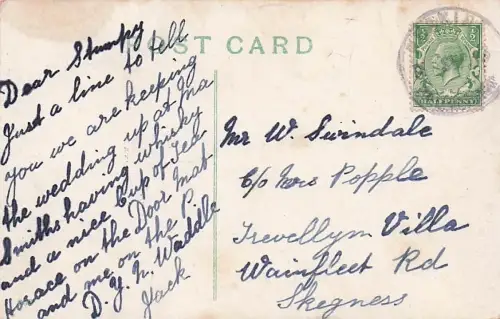 POST CARD
HALFPENNY
Dear Stumpy
Just a line to tell
you we are keeping
the wedding up at Ma
Smiths having whisky
and a nice Cup of Tea
Horace on the Door Mat
and me on the P.
D. Y. N. Waddle
Jack
Mr W. Swindale
C/o Mrs Popple
Trevellym Villa
Wainfleet Rd
Skegness